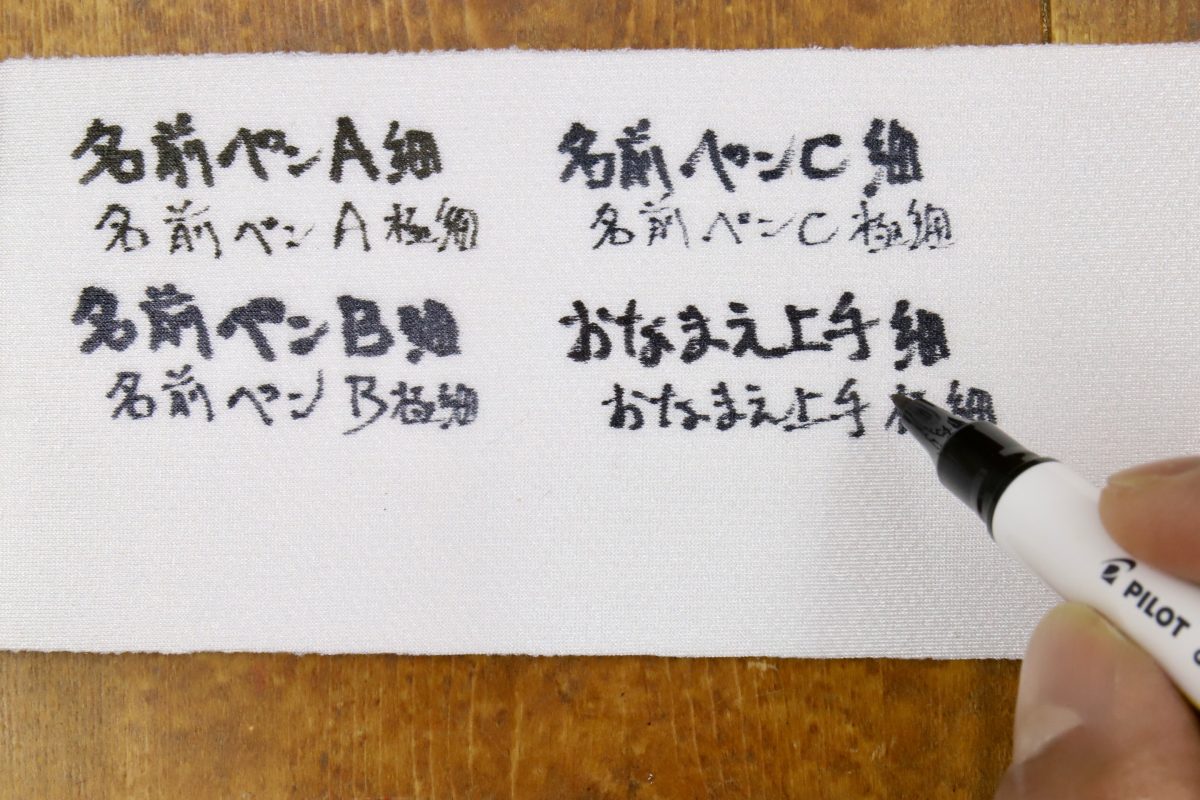 名前ペンA細
名前ペンA極細
名前ペンB細
名前ペンB極細
名前ペンC細
名前ペンC極細
おなまえ上手細
おなまえ上手極細
PILOT